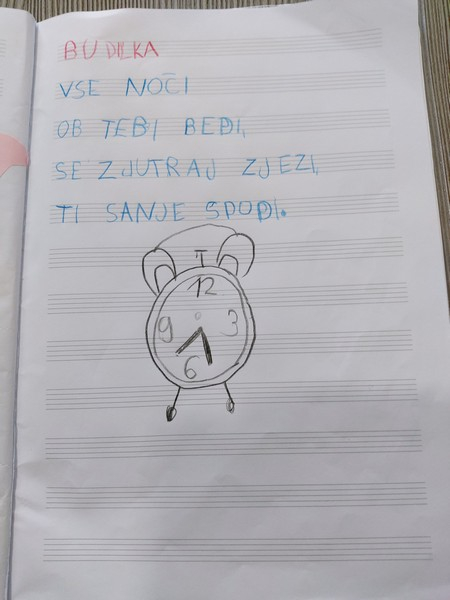 BUDILKA
VSE NOČI
OB TEBI BEDI,
SE ZJUTRAJ ZJEZI,
TI SANJE SPODI.
12
9 3
6